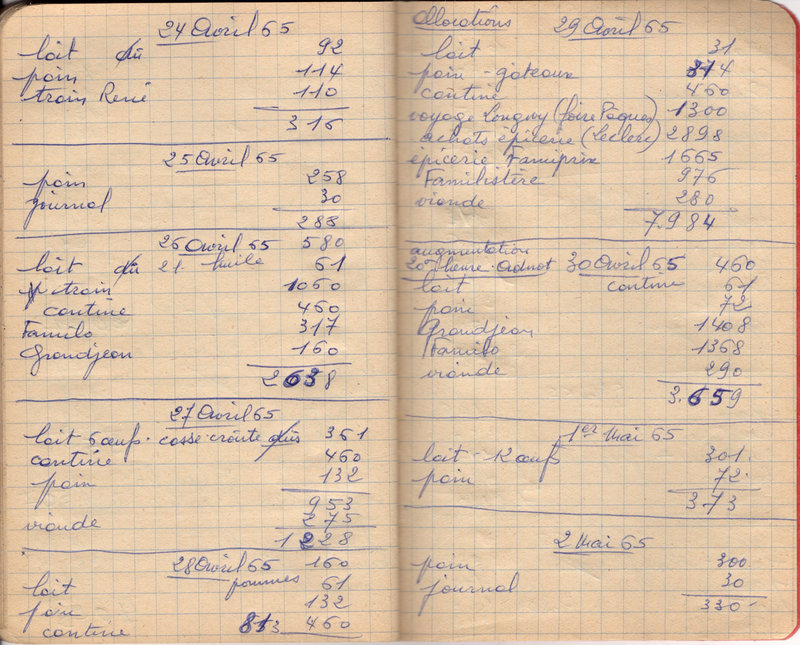 24 Avril 65
lait dû 92
pain 114
train René 110
316
25 Avril 65
pain 258
journal 30
288
26 Avril 65 580
lait dû 2l huile 61
train 1060
cantine 460
Familo 317
Grandjean 160
2638
27 Avril 65
lait 6 œufs. casse croûte dûs 361
cantine 460
pain 132
953
viande 275
1228
28 Avril 65 160
pommes
lait 61
pain 132
cantine 813 460
allocations 29 Avril 65
lait 31
pain - gâteaux 374
cantine 460
voyage Longwy (foire Pâques) 1300
achats épicerie (Leclerc) 2898
épicerie Famiprix 1665
Familistère 976
viande 280
7.984
augmentation
20 heure Adnot 30 Avril 65 460
cantine
lait 61
pain 72
Grandjean 1408
Familo 1368
viande 290
3.659
1er Mai 65
lait - œufs 301.
pain 72.
373
2 Mai 65
pain 300
journal 30
330